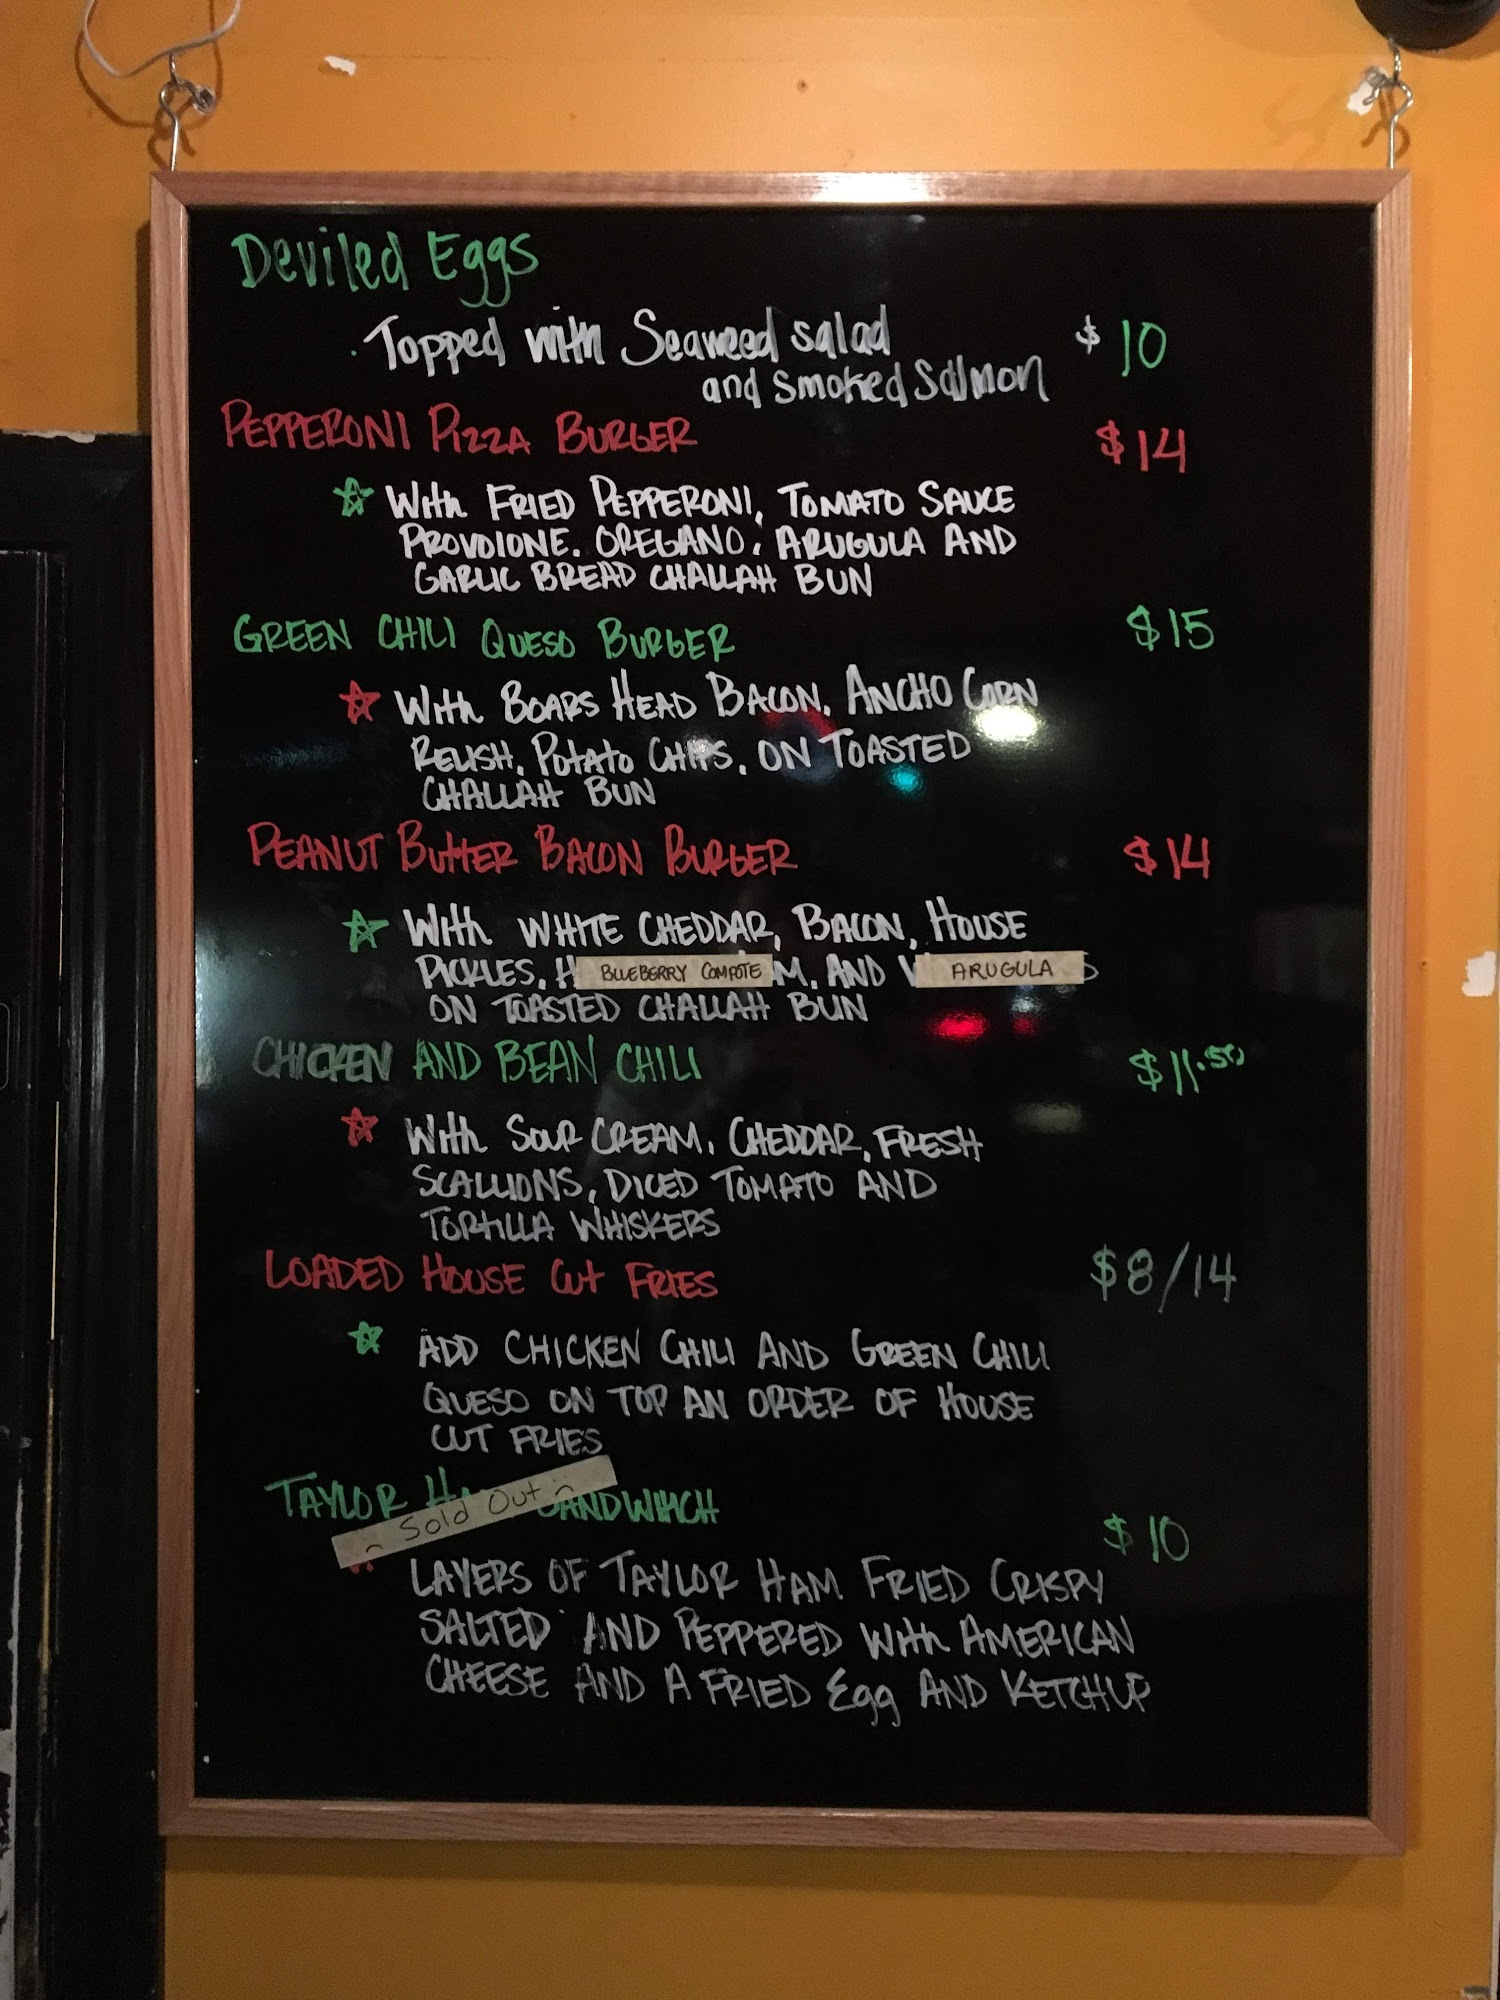 Deviled Eggs
Topped with Seaweed salad $10
and Smoked Salmon
PEPPERONI PIZZA BURGER $14
With FRIED PEPPERONI, TOMATO SAUCE
PROVOLONE. OREGANO, ARUGULA AND
GARLIC BREAD CHALLAH BUN
GREEN CHILI QUESO BURGER $15
With BOARS HEAD BACON, ANCHO CORN
RELISH, POTATO CHIPS, ON TOASTED
CHALLAH BUN
PEANUT BUTTER BACON BURGER $14
With WHITE CHEDDAR, BACON, HOUSE
PICKLES, BLUEBERRY COMPOTE AND ARUGULA
ON TOASTED CHALLAH BUN
CHICKEN AND BEAN CHILI $11.50
With SOUR CREAM, CHEDDAR, FRESH
SCALLIONS, DICED TOMATO AND
TORTILLA WHISKERS
LOADED HOUSE CUT FRIES $8/14
ADD CHICKEN CHILI AND GREEN CHILI
QUESO ON TOP AN ORDER OF HOUSE
CUT FRIES
TAYLOR SANDWHICH $10
Sold Out
LAYERS OF TAYLOR HAM FRIED CRISPY
SALTED AND PEPPERED With AMERICAN
CHEESE AND A FRIED Egg AND KETCHUP